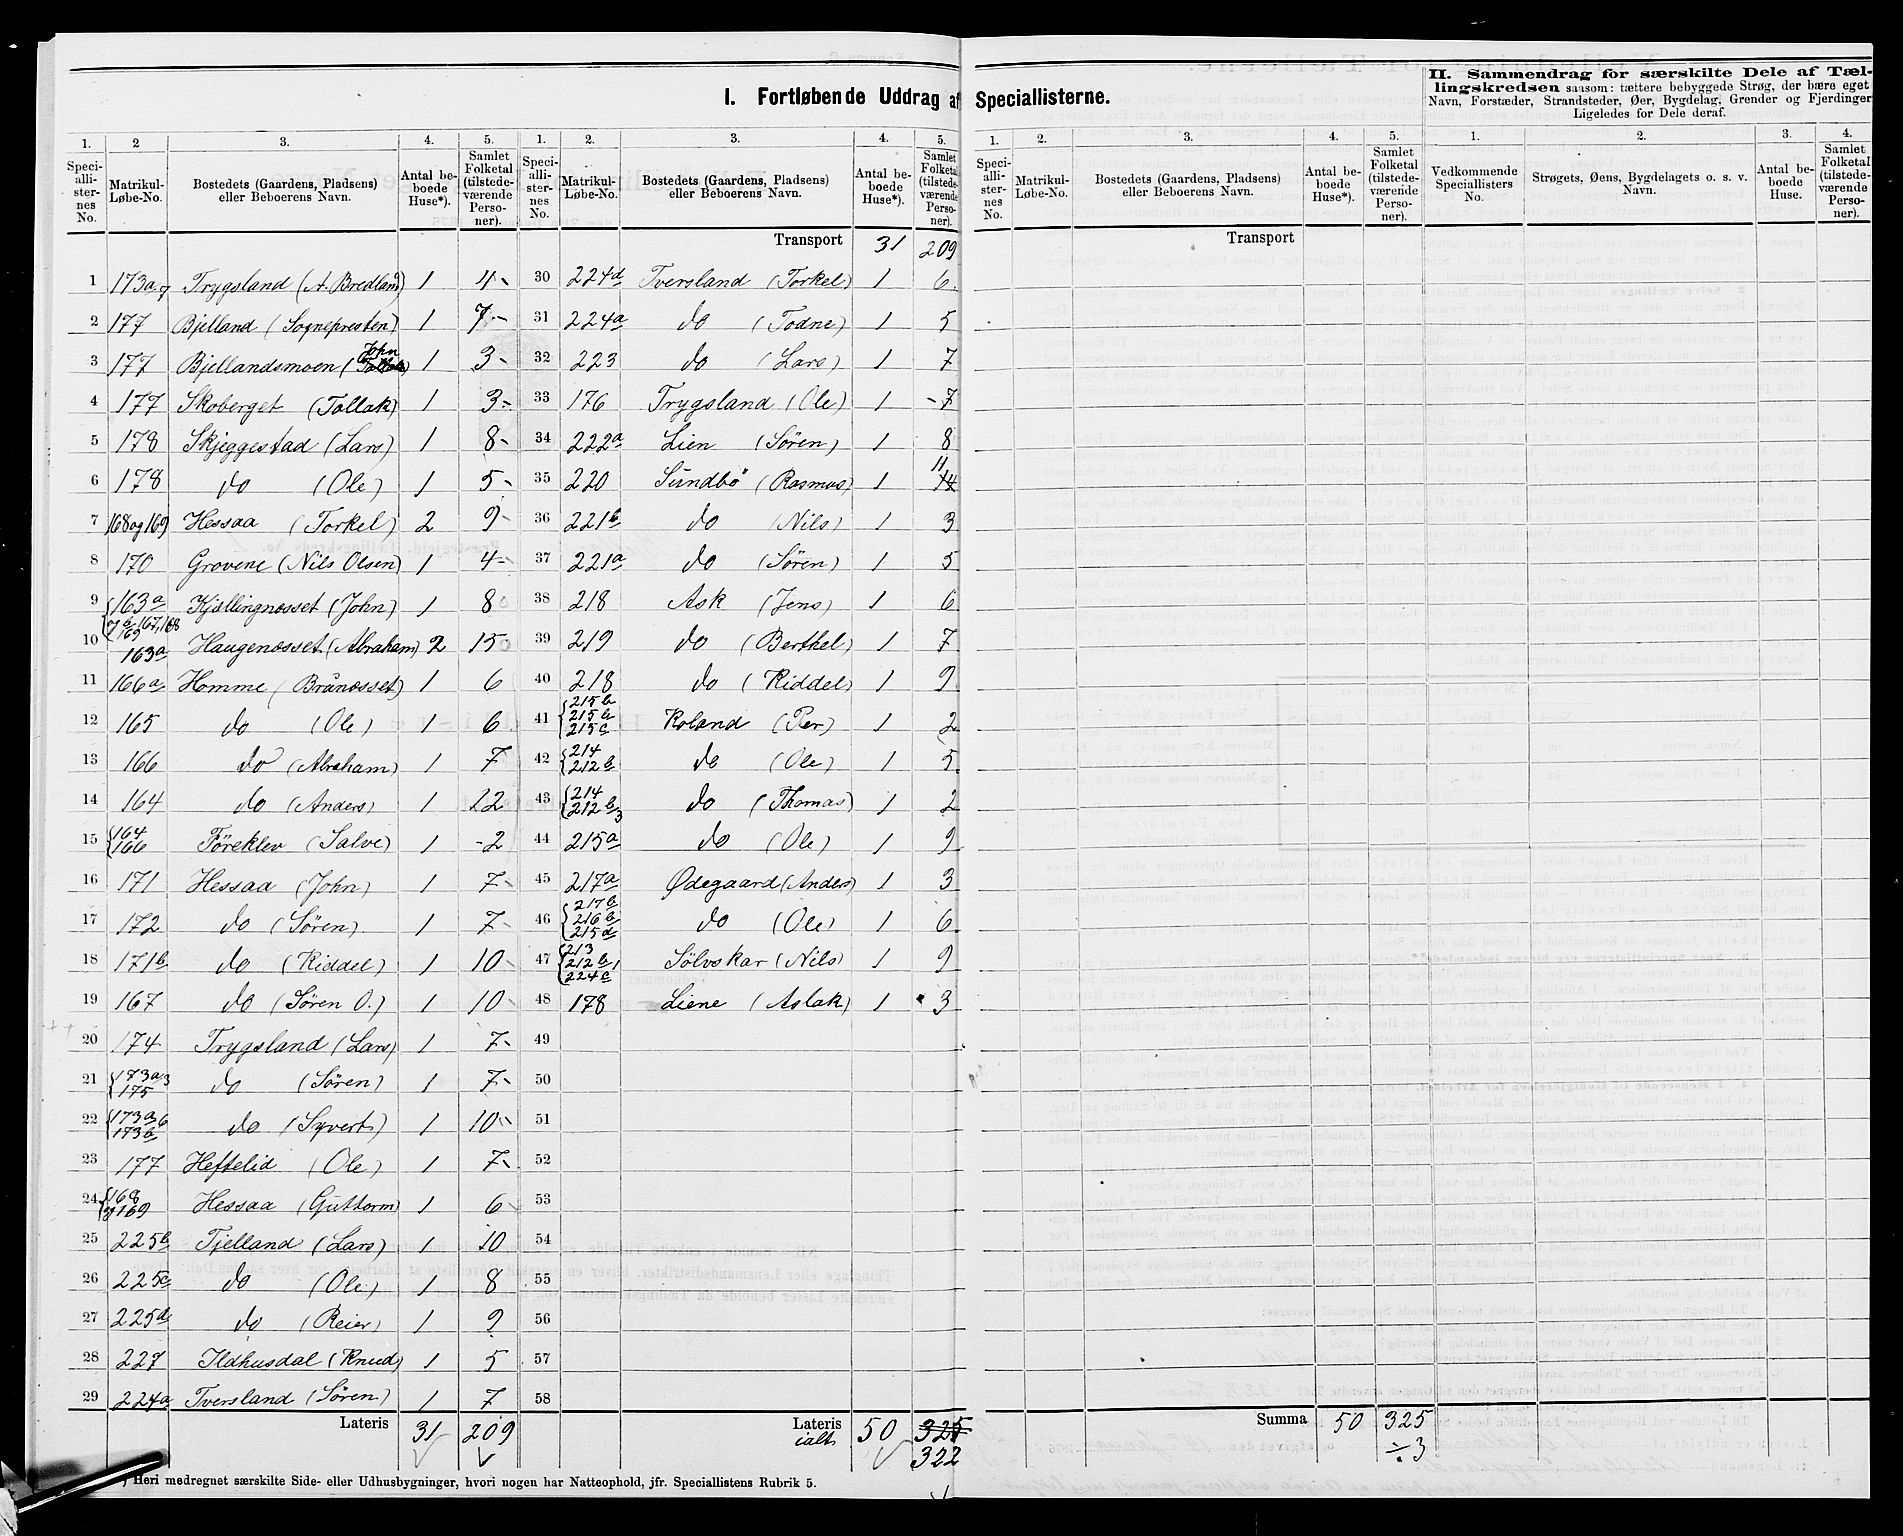 I. Fortløbende Uddrag af Speciallisterne.
II. Sammendrag for særskilte Dele af Tæl-
lingskredsen saasom: tættere bebyggede Strøg, der bære eget
Navn, Forstæder, Strandsteder, Øer, Bygdelag, Grender og Fjerdinger
Ligeledes for Dele deraf.
1. 2 3. 4. 5. 1. 2. 3. 4. 5.
Speci-alli-ster-nes No. Matrikul-Løbe-No. Bostedets (Gaardens, Pladsens) eller Beboerens Navn. Antal be-boede Huse*). Samlet Folketal (tilstede-værende Perso-ner).
Speci-alli-ster-nes No. Matrikul-Løbe-No. Bostedets (Gaardens, Pladsens) eller Beboerens Navn. Antal be-boede Huse*). Samlet Folketal (tilstede-værende Perso-ner).
Transport 31 209
1 173a7 Trygsland (A. Bredland) 1 4
2 177 Bjelland (Sognepresten) 1 7
3 177 Bjellandsmoen (John) 1 3
4 177 Skoberget (Tollak) 1 3
5 178 Skjeggestad (Lars) 1 8
6 178 do (Ole) 1 5
7 168og169 Hessaa (Torkel) 2 9
8 170 Grovene (Nils Olsen) 1 4
9 163a Kjællingnæsset (John) 1 8
167,168 169
10 163a Haugenæsset (Abraham) 2 15
11 166a Homme (Brånæsset) 1 6
12 165 do (Ole) 1 6
13 166 do (Abraham) 1 7
14 164 do (Anders) 1 12
15 164 166 Föreklev (Salve) 1 2
16 171 Hessaa (John) 1 7
17 172 do (Sören) 1 7
18 171b do (Riddel) 1 10
19 167 do (Sören O.) 1 10
20 174 Trygsland (Lars) 1 7
21 173a3 175 do (Sören) 1 7
22 173a6 173b do (Syvert) 1 10
23 177 Heftelid (Ole) 1 7
24 168 169 Hessaa (Guttorm) 1 6
25 225b Tjelland (Lars) 1 10
26 225c do (Ole) 1 8
27 225d do (Reier) 1 9
28 227 Ildhusdal (Knud) 1 5
29 224a Tversland (Sören) 1 7
Lateris 31 209
30 224d Tversland (Torkel) 1 6
31 224a do (Todne) 1 5
32 223 do (Lars) 1 7
33 176 Trygsland (Ole) 1 7
34 222a Lien (Sören) 1 8
35 220 Sundbö (Rasmus) 1 11
36 221b do (Nils) 1 3
37 221a do (Sören) 1 5
38 218 Ask (Jens) 1 6
39 219 do (Berthel) 1 7
40 218 do (Riddel) 1 9
41 215b 215b 215c Roland (Per) 1 2
42 214 212b do (Ole) 1 5
43 214 212b3 do (Thomas) 1 2
44 215a do (Ole) 1 9
45 217a Ødegaard (Anders) 1 3
46 217b 216b 215d do (Ole) 1 6
47 213 212b1 224c Sölvskar (Nils) 1 9
48 178 Liene (Aslak) 1 3
49
50
51
52
53
54
55
56
57
58
Lateris 50 325
ialt 322
*) Heri medregnet særskilte Side- eller Udhusbygninger, hvori nogen har Natteophold, jfr. Speciallistens Rubrik 5.
1. 2. 3. 4. 5. 1. 2. 3. 4.
Speci-alli-ster-nes No. Matrikul-Løbe-No. Bostedets (Gaardens, Pladsens) eller Beboerens Navn. Antal be-boede Huse*). Samlet Folketal (tilstede-værende Perso-ner).
Vedkommende Speciallisters No. Strøgets, Øens, Bygdelagets o. s. v. Navn. Antal be-boede Huse. Samlet Folketal (tilstede-værende Perso-ner).
Transport
Summa 50 325
÷3